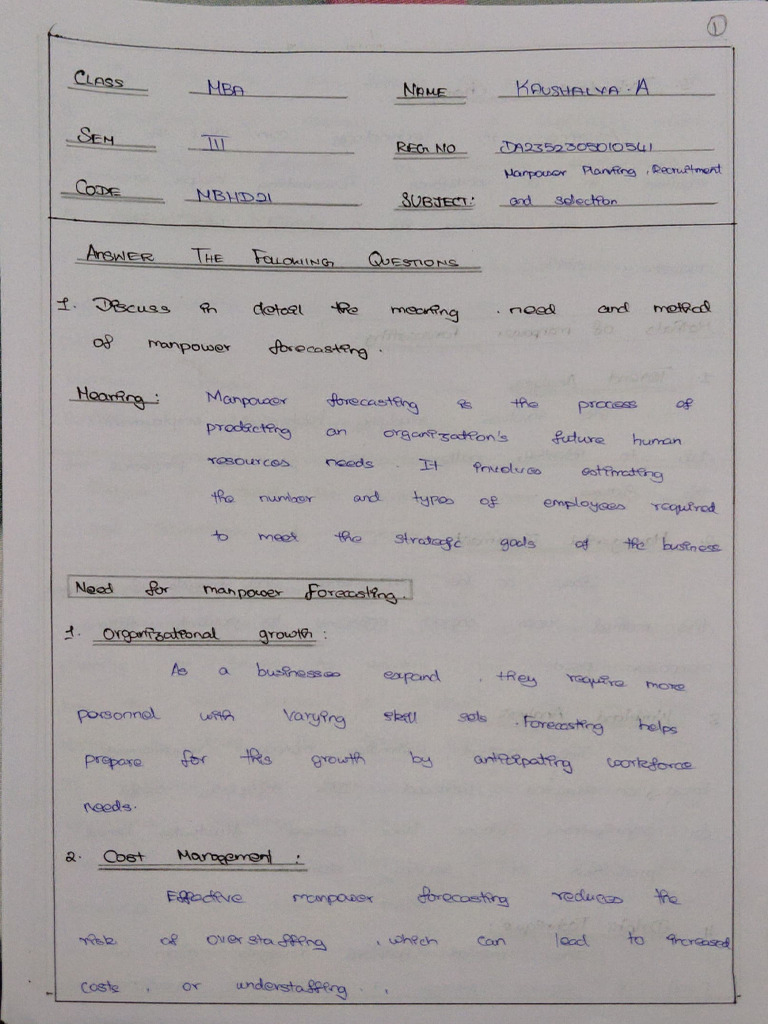 1
CLASS MBA NAME KAUSHALYA . A
SEM III REG NO DA2352305010541
CODE MBHD21 SUBJECT: Manpower Planning , Recruitment
and selection
ANSWER THE FOLLOWING QUESTIONS
1. Discuss in detail the meaning , need and method
of manpower forecasting .
Meaning : Manpower forecasting is the process of
predicting an organization's future human
resources needs . It involves estimating
the number and types of employees required
to meet the strategic goals of the business
Need for manpower Forecasting .
1. Organizational growth :
As a businesses expand , they require more
personnel with varying skill sets . Forecasting helps
prepare for this growth by anticipating workforce
needs .
2. Cost Management :
Effective manpower forecasting reduces the
risk of overstaffing , which can lead to increased
costs , or understaffing . .